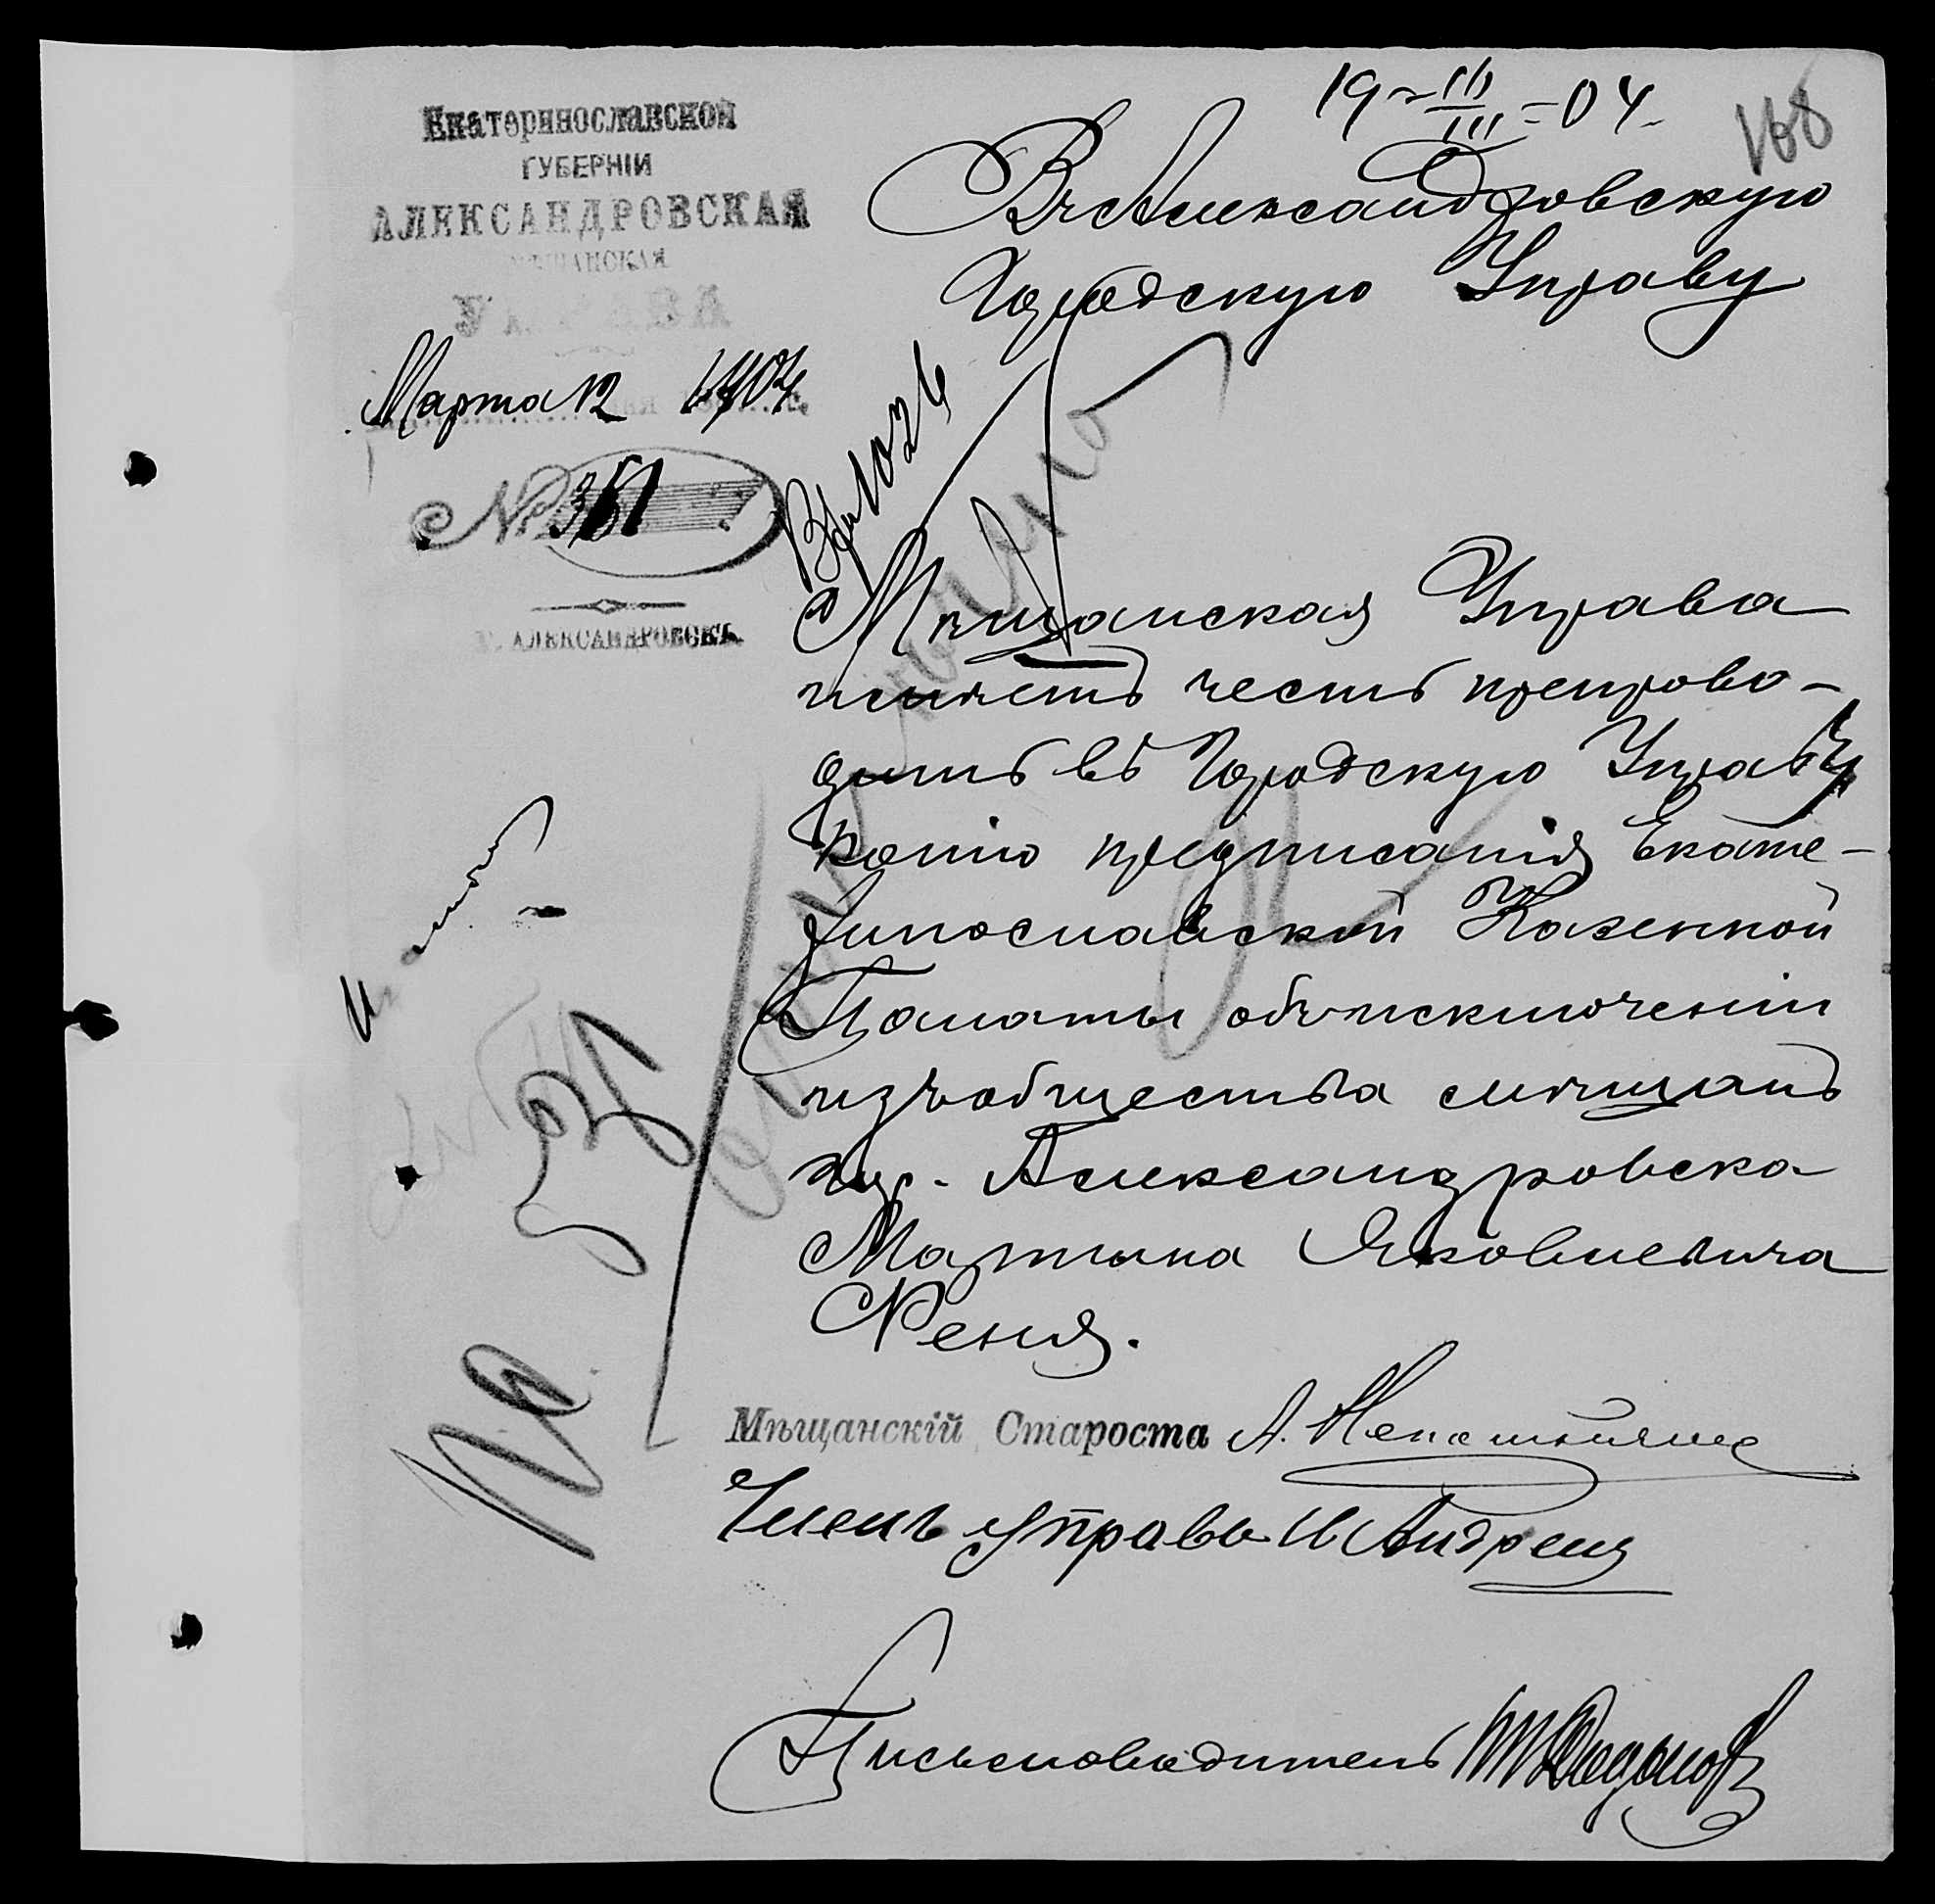 19 16/III 04
168
Екатеринославской
ГУБЕРНІИ
АЛЕКСАНДРОВСКАЯ
МѢЩАНСКАЯ
УПРАВА
Марта 12 1904
№ 361
Г. АЛЕКСАНДРОВСКЪ
Въ Александровскую
Городскую Управу
Мѣщанская Управа
имѣетъ честь препрово-
дить въ Городскую Управу
копію предписанія Екате-
ринославской Казенной
Палаты объ исключеніи
изъ общества мѣщанъ
гор. Александровска
Мартына Яковлевича
Реня.
Мѣщанскій Староста А.
Членъ Управы И Андрещ
Письмоводитель